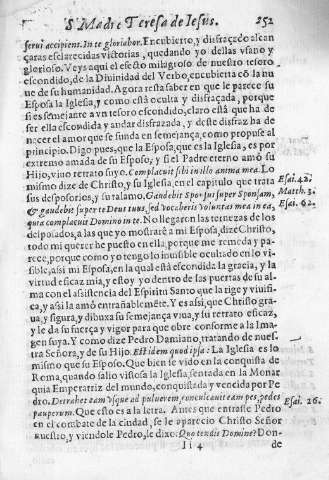 S. Madre Teresa de Iesus. 252
serui accipiens. In te gloriabor. Encubierto, y disfraçado alcan
çaras esclarecidas vitorias, quedando yo dellas vfano y
glorioso. Veys aqui el efecto milagroso de nuestro tesoro
escondido, de la Diuinidad del Verbo, encubierta cō la nu
ue de su humanidad. Agora resta saber en que le parece su
Esposa la Iglesia, y como està oculta y disfraçada, porque
si es semejante a vn tesoro escondido, claro està que ha de
ser ella escondida y andar disfrazada, y deste disfraz ha de
nacer el amor que se funda en semejança, como propuse al
principio. Digo pues, que la Esposa, que es la Iglesia, es por
extremo amada de su Esposo, y si el Padre eterno amò su
Hijo, viuo retrato suyo. Complacuit sibi in illo anima mea. Lo
mismo dize de Christo, y su Iglesia, en el capitulo que trata Esai. 42.
sus desposorios, y su talamo. Gaudebit Sponsus super Sponsam, Matth. 3.
& gaudebit super te Deus tuus, sed vocaberis voluntas mea in ea, Esai. 62.
quia complacuit Domino in te. No llegaron las ternezas de los
desposados, a las que yo mostrarè a mi Esposa, dize Christo,
todo mi querer he puesto en ella, porque me remeda y pa-
rece, porque como yo tengo lo inuisible ocultado en lo vi-
sible, assi mi Esposa, en la qual està escondida la gracia, y la
virtud eficaz mia, y estoy yo dentro de las puertas de su al-
ma con el assistencia del Espiritu Santo que la rige y viuifi-
ca, y assi la amò entrañablemēte. Y es assi, que Christo gra-
ua, y figura, y dibuxa su semejança viua, y su retrato eficaz,
y le da su fuerça y vigor para que obre conforme a la Ima-
gen suya. Y como dize Pedro Damiano, tratando de nues-
tra Señora, y de su Hijo. Est idem quod ipsa: La Iglesia es lo
mismo que su Esposo. Que bien se vido en la conquista de
Roma, quando salio vistosa la Iglesia, sentada en la Monar
quia Emperatriz del mundo, conquistada y vencida por Pe
dro. Detrahet eam vsque ad puluerem, conculcauit eam pes, pedes Esai. 26.
pauperum. Que esto es a la letra. Antes que entrasse Pedro
en el combate de la ciudad, se le aparecio Christo Señor
nuestro, y viendole Pedro, le dixo: Quo tendis Domine? Don-
Ii 4 de